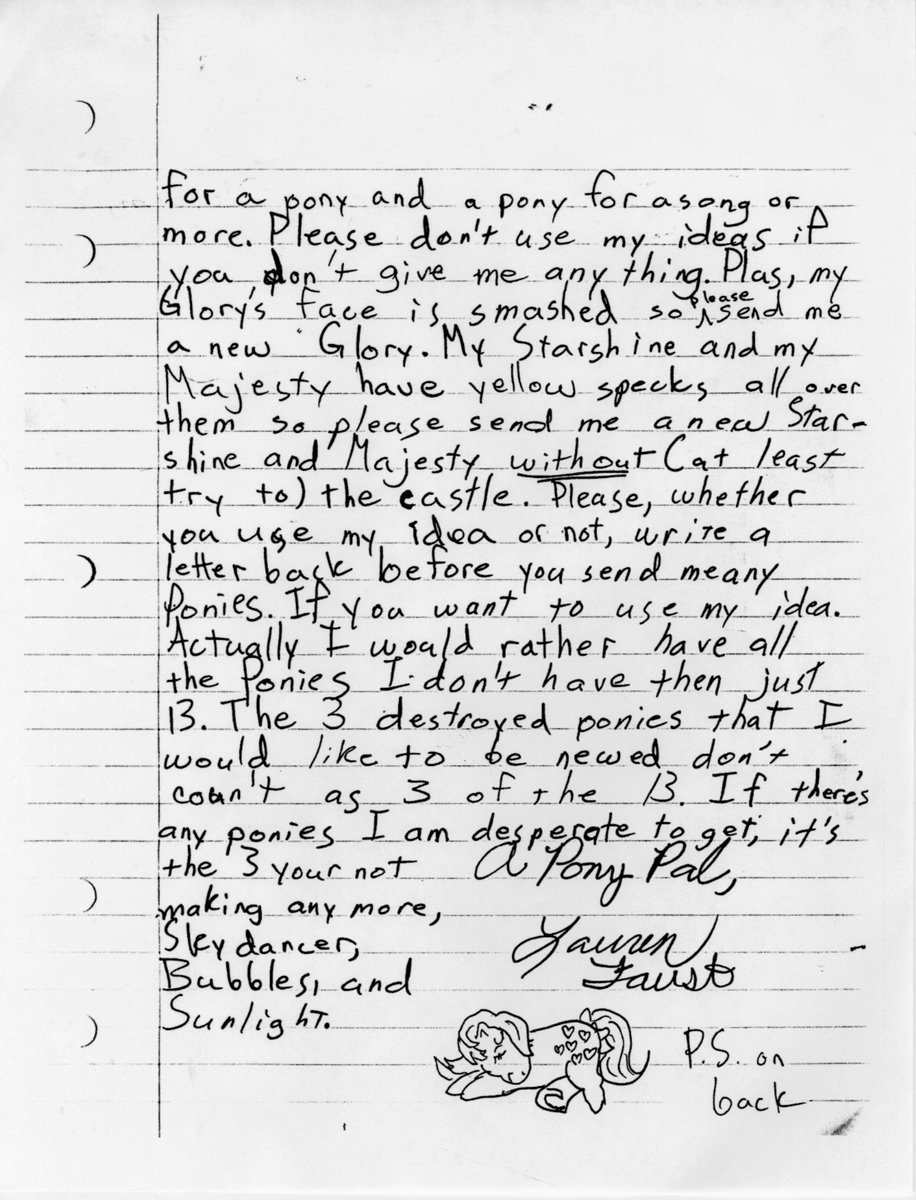 for a pony and a pony for a song or
more. Please don't use my ideas if
you don't give me any thing. Plas, my
Glory's face is smashed so please send me
a new Glory. My Starshine and my
Majesty have yellow specks all over
them so please send me a new Star-
shine and Majesty without (at least
try to) the castle. Please, whether
you use my idea or not, write a
letter back before you send me any
Ponies. If you want to use my idea.
Actually I would rather have all
the Ponies I don't have then just
13. The 3 destroyed ponies that I
would like to be newed don't
coun't as 3 of the 13. If there's
any ponies I am desperate to get, it's
the 3 your not
making any more,
Sky dancer,
Bubbles, and
Sunlight.
A Pony Pal,
Lauren
Faust
P.S. on
back